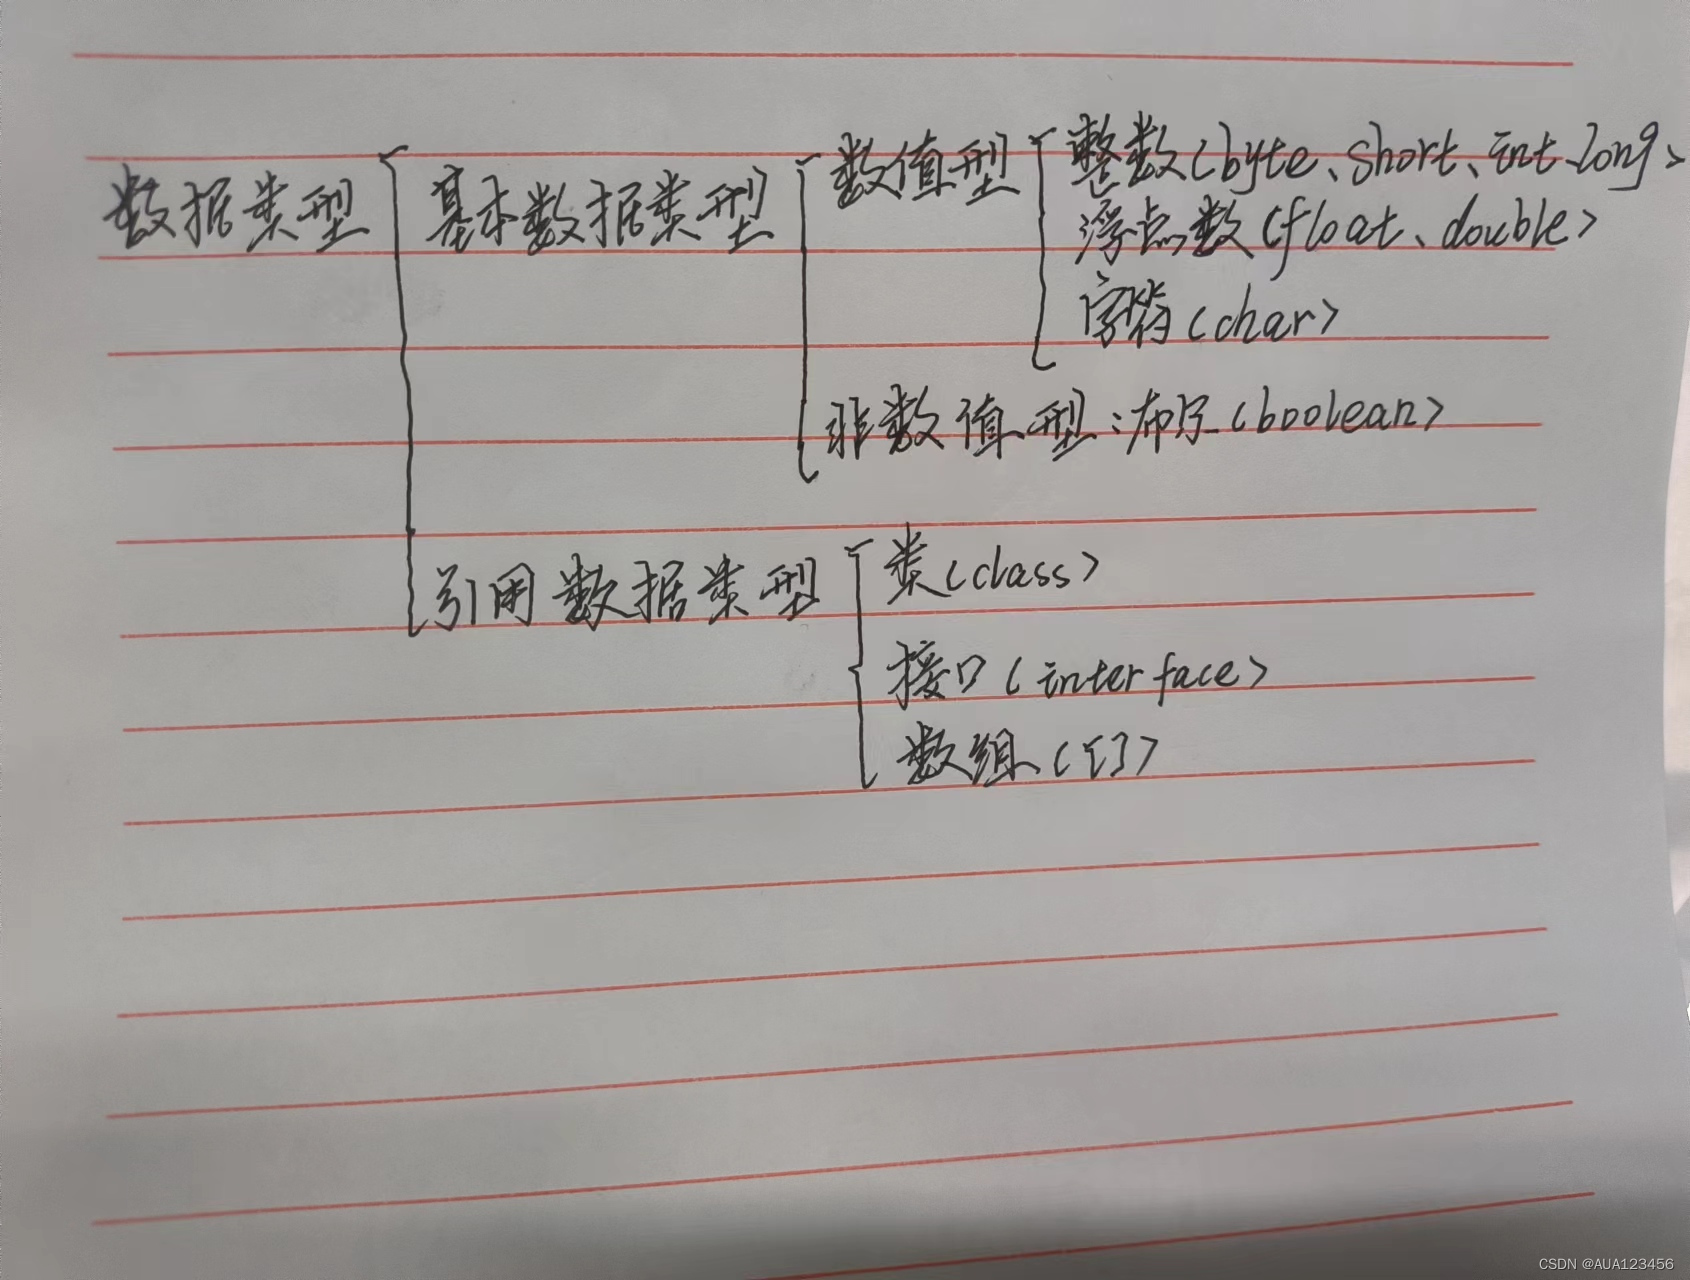 数据类型 基本数据类型 数值型 整数(byte、short、int、long)
浮点数(float、double)
字符(char)
非数值型:布尔(boolean)
引用数据类型 类(class)
接口(interface)
数组([])
CSDN @AUA123456